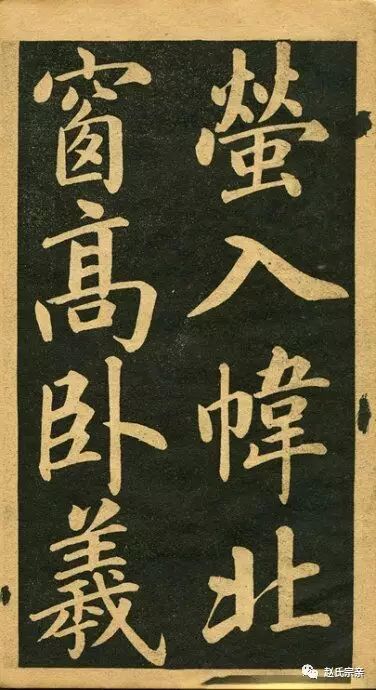 螢入幃北
窗高卧羲
赵氏宗亲